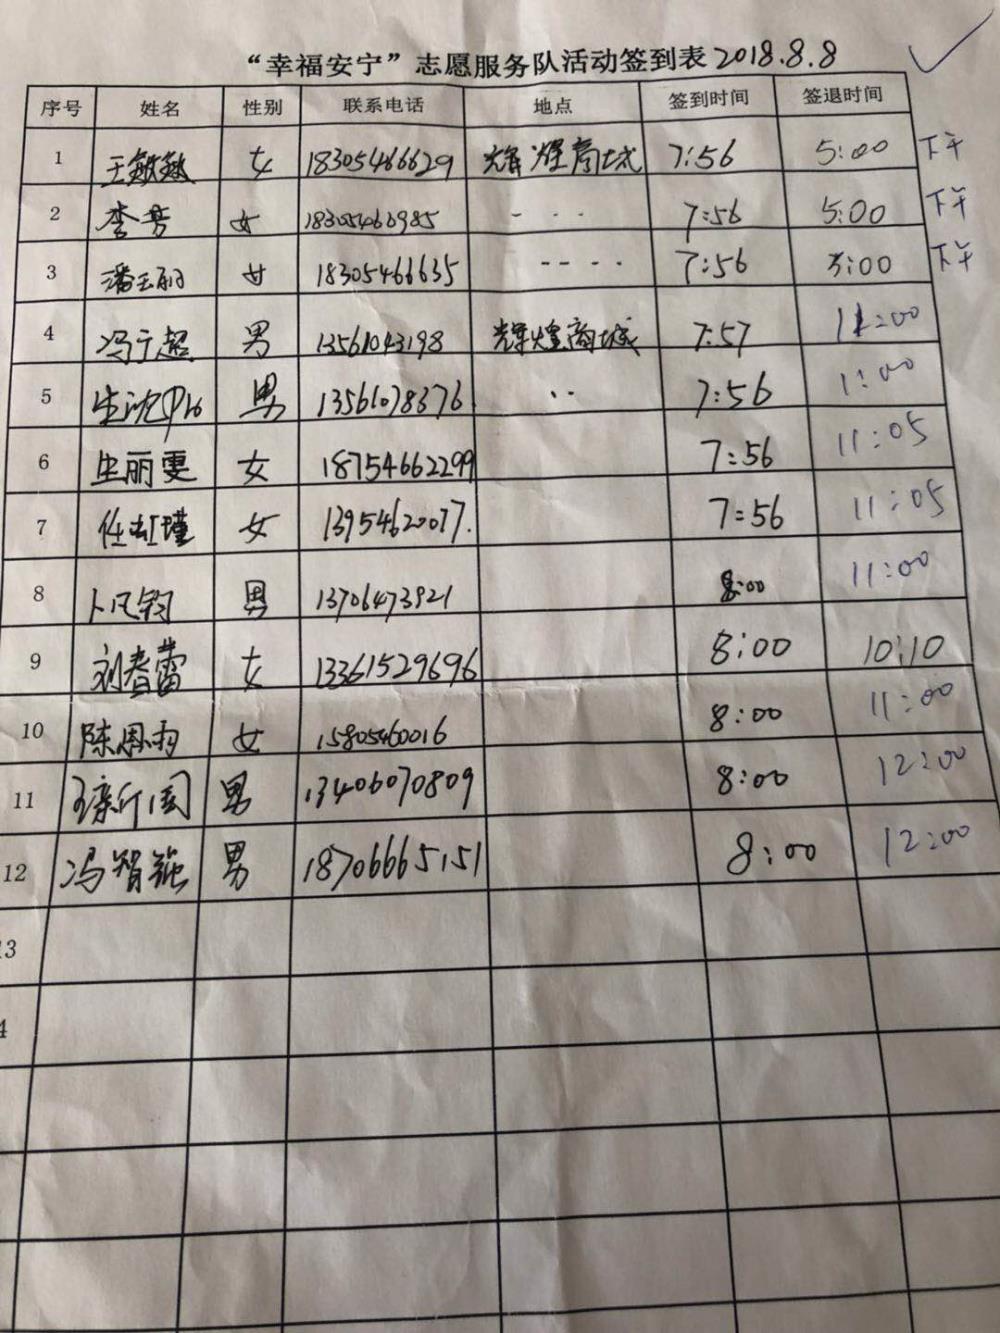 “幸福安宁”志愿服务队活动签到表 2018.8.8
序号 姓名 性别 联系电话 地点 签到时间 签退时间
1 王敏敏 女 18305466629 辉煌商城 7:56 5:00 下午
2 李芳 女 18305460985 - - - 7:56 5:00 下午
3 潘玉丽 女 18305466635 - - - - 7:56 5:00 下午
4 冯宁超 男 13561043198 辉煌商城 7:57 11:00
5 男 13561078376 ·· 7:56 1:00
6 生丽雯 女 18754662299 7:56 11:05
7 任虹瑾 女 13954620077. 7:56 11:05
8 卜凡钧 男 13706473921 8:00 11:00
9 刘春蕾 女 13361529696 8:00 10:10
10 陈恩雨 女 15805460016 8:00 11:00
11 男 13406070809 8:00 12:00
12 冯智能 男 18706665151 8:00 12:00
13
4